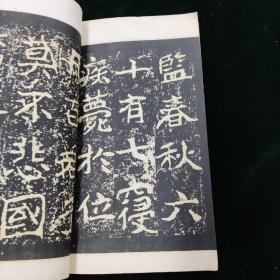 監春秋六
十有七寝
疾薨於位
百
莫不悲國